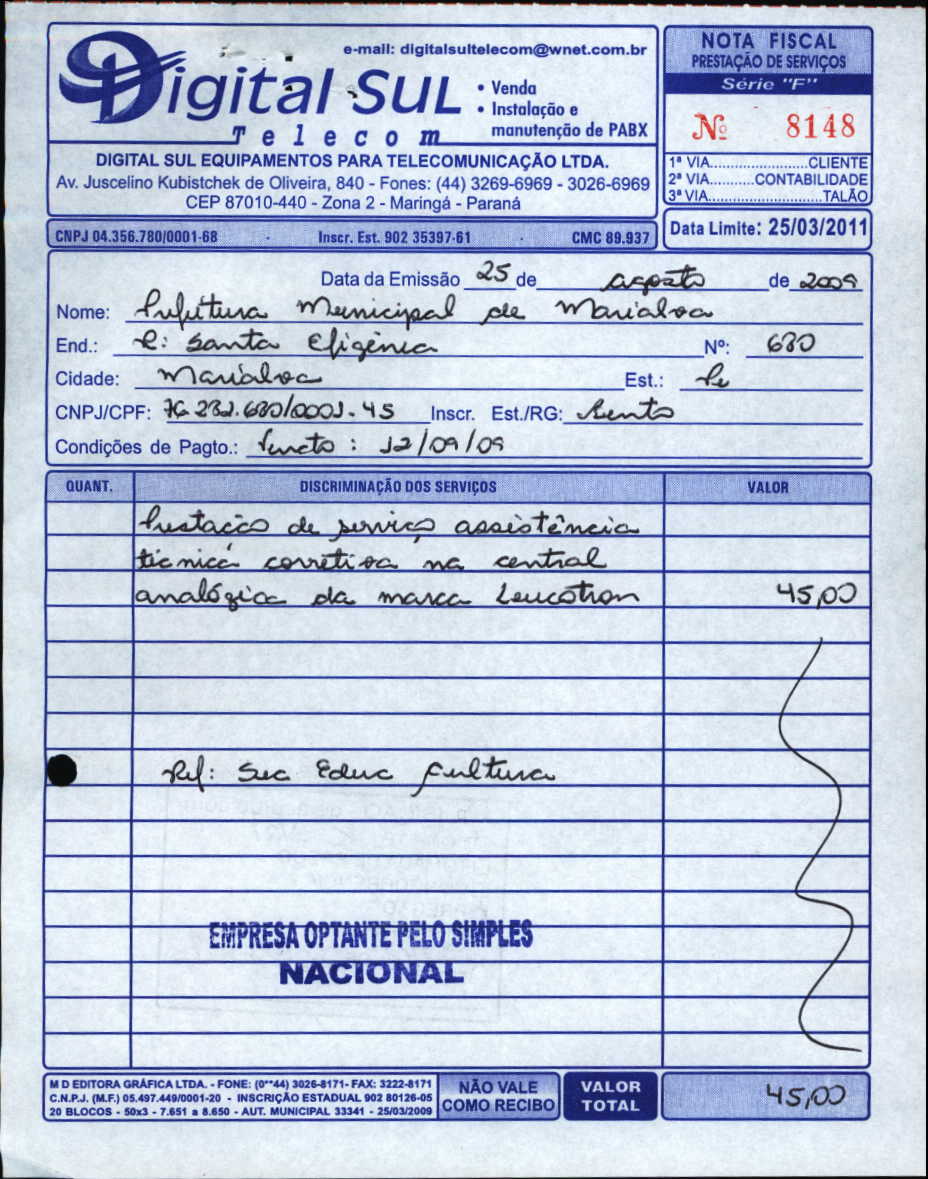 e-mail: digitalsultelecom@wnet.com.br
Digital SUL
Telecom
• Venda
• Instalação e
manutenção de PABX
DIGITAL SUL EQUIPAMENTOS PARA TELECOMUNICAÇÃO LTDA.
Av. Juscelino Kubistchek de Oliveira, 840 - Fones: (44) 3269-6969 - 3026-6969
CEP 87010-440 - Zona 2 - Maringá - Paraná
CNPJ 04.356.780/0001-68 Inscr. Est. 902 35397-61 CMC 89.937
NOTA FISCAL
PRESTAÇÃO DE SERVIÇOS
Série "F"
Nº 8148
1ª VIA........................CLIENTE
2ª VIA..........CONTABILIDADE
3ª VIA............................TALÃO
Data Limite: 25/03/2011
Data da Emissão 25 de agosto de 2009
Nome: Prefeitura Municipal de Marialva
End.: R: Santa Efigênia Nº: 680
Cidade: Marialva Est.: Pr
CNPJ/CPF: 76.282.680/0001-45 Inscr. Est./RG: Isento
Condições de Pagto.: Vencto: 12/09/09
QUANT. DISCRIMINAÇÃO DOS SERVIÇOS VALOR
Prestação de serviço assistência
técnica corretiva na central
analógica da marca Leucotron 45,00
Ref: Sec Educ Cultura
EMPRESA OPTANTE PELO SIMPLES
NACIONAL
M D EDITORA GRÁFICA LTDA. - FONE: (0**44) 3026-8171- FAX: 3222-8171
C.N.P.J. (M.F.) 05.497.449/0001-20 - INSCRIÇÃO ESTADUAL 902 80126-05
20 BLOCOS - 50x3 - 7.651 a 8.650 - AUT. MUNICIPAL 33341 - 25/03/2009
NÃO VALE
COMO RECIBO
VALOR
TOTAL
45,00